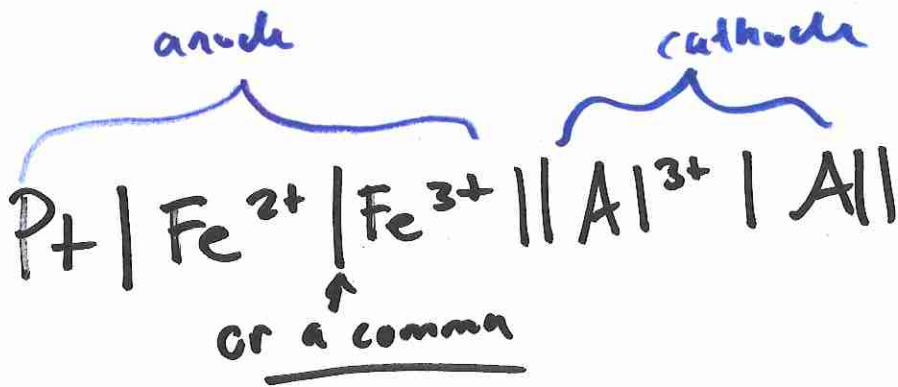 anode cathode
Pt | Fe²⁺ | Fe³⁺ || Al³⁺ | Al|
↑
or a comma